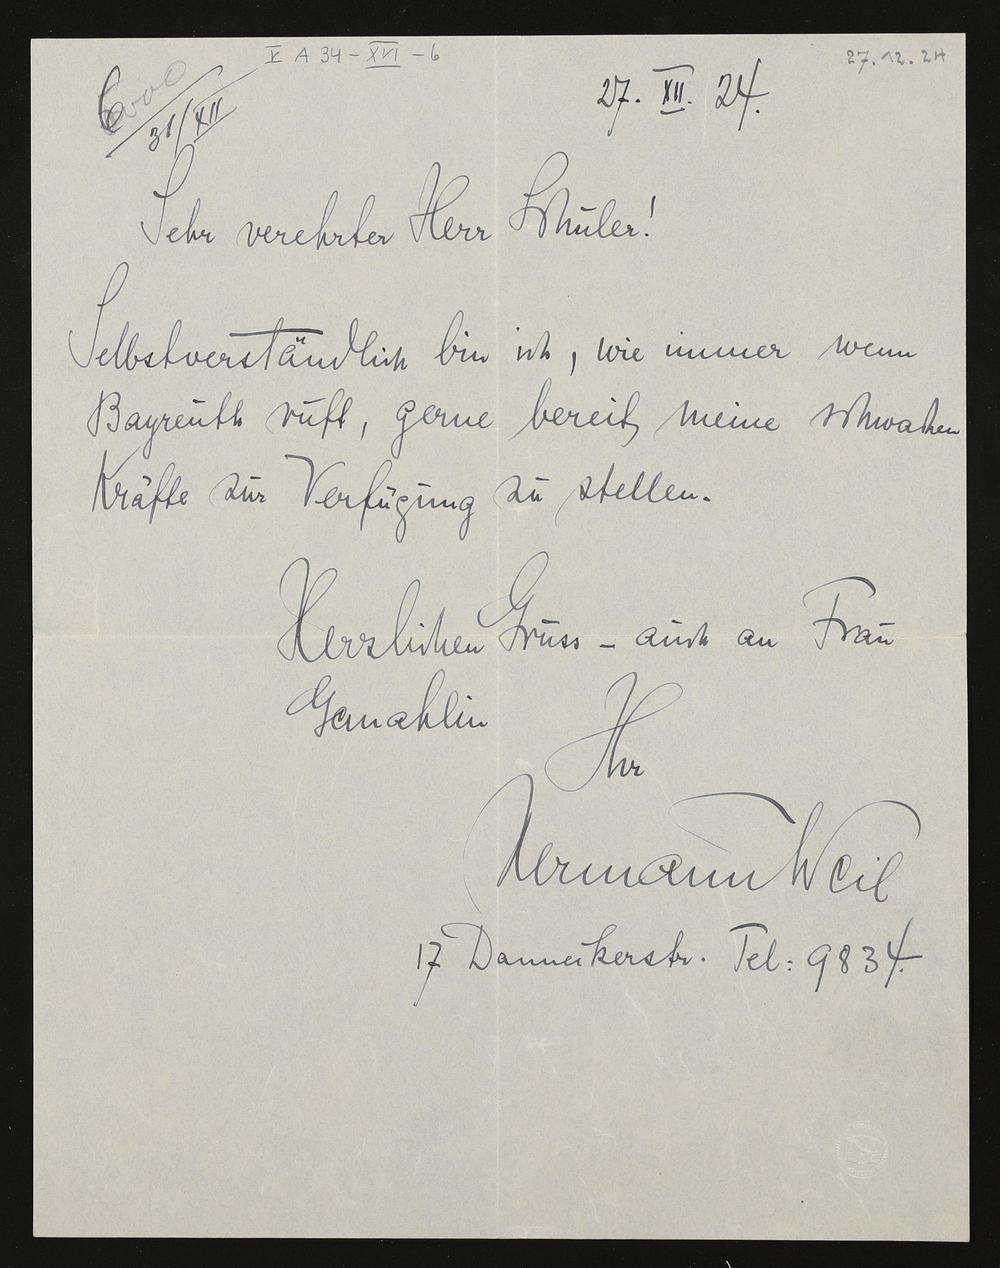 V A 34 - XVI - 6
27.12.24
31/XII
27. XII. 24.
Sehr verehrter Herr Schuler!
Selbstverständlich bin ich, wie immer wenn
Bayreuth ruft, gerne bereit, meine schwachen
Kräfte zur Verfügung zu stellen.
Herzlichen Gruss – auch an Frau
Gemahlin
Ihr
Hermann Weil
17 Danneckerstr. Tel: 9834.